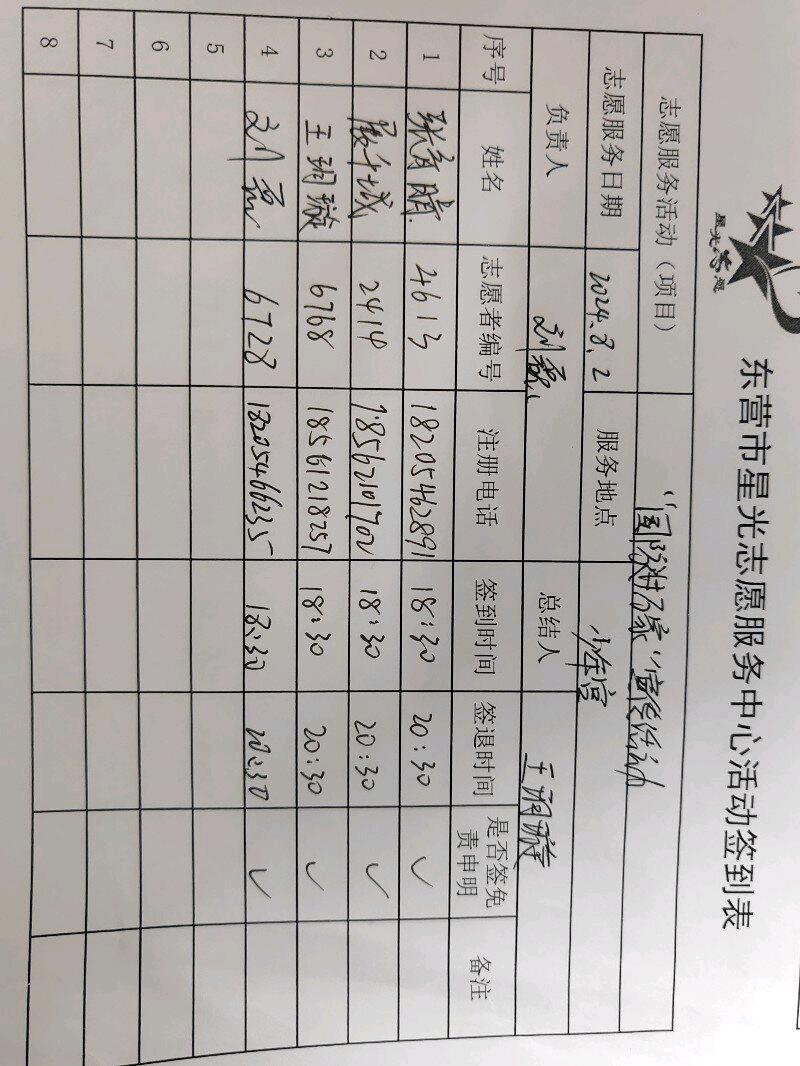 星光志愿
东营市星光志愿服务中心活动签到表
志愿服务活动（项目） "国防进万家"宣传活动
志愿服务日期 2024.8.2 服务地点 少年宫
负责人 刘 总结人 王翊璇
序号 姓名 志愿者编号 注册电话 签到时间 签退时间 是否签免责申明 备注
1 张育晴 4613 18205462891 18:30 20:30 ✓
2 2414 18562101702 18:30 20:30 ✓
3 王翊璇 6768 18561218257 18:30 20:30 ✓
4 刘 6728 18205466235 18:30 20:30 ✓
5
6
7
8